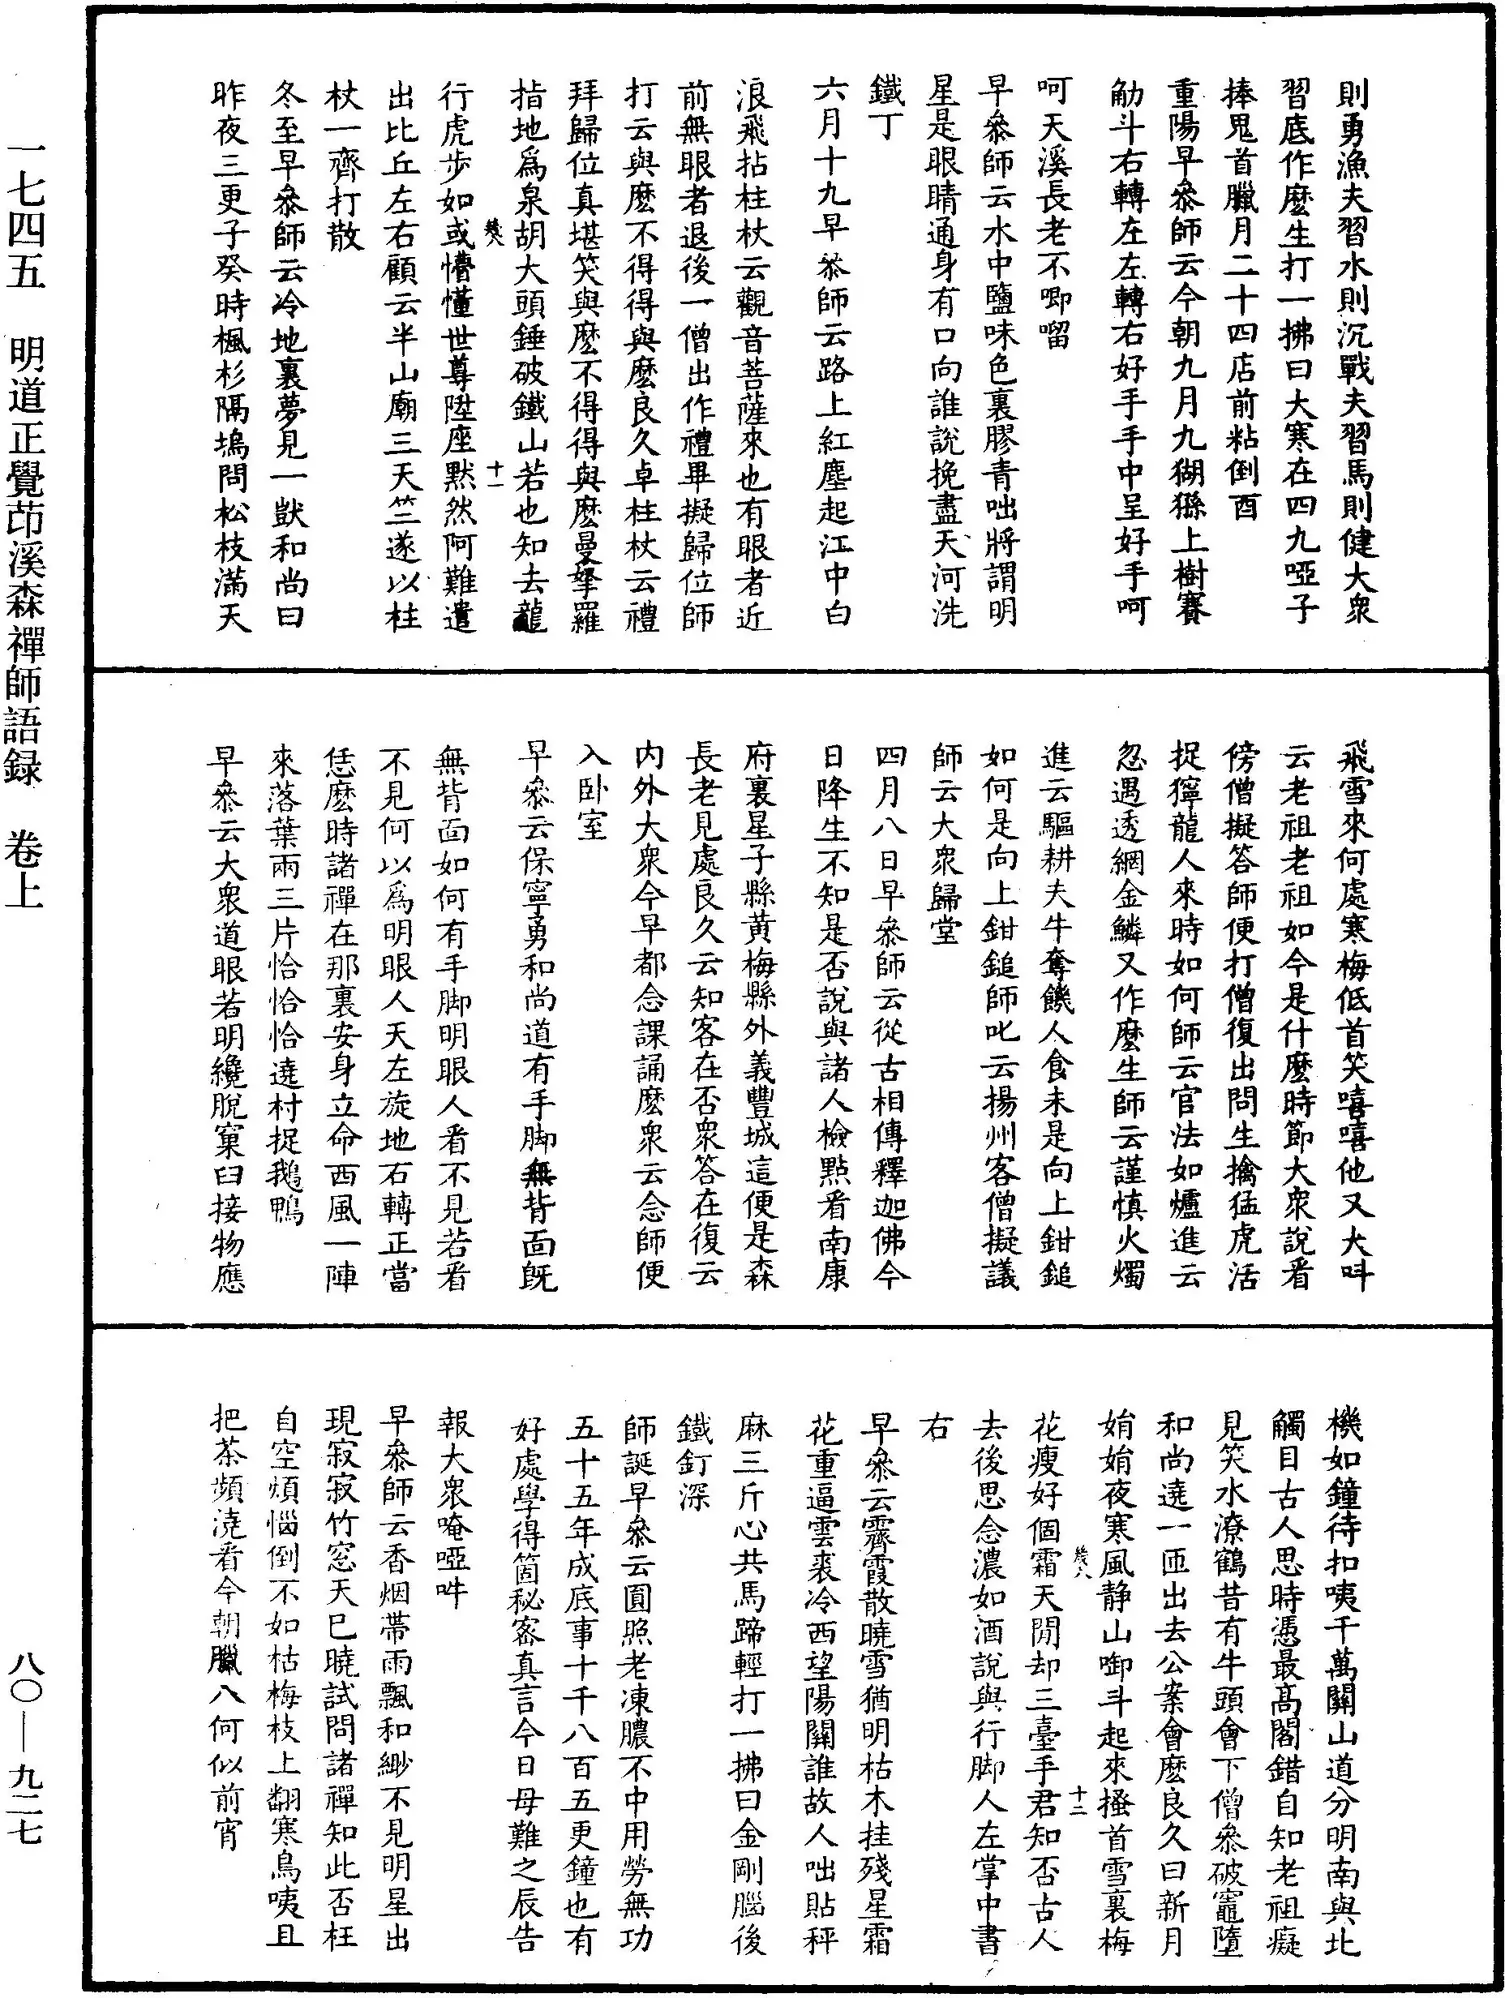 則勇漁夫習水則沉戰夫習馬則健大衆
習底作麽生打一拂曰大寒在四九啞子
捧鬼首臘月二十四店前粘倒酉
重陽早參師云今朝九月九猢猻上樹賽
觔斗右轉左左轉右好手手中呈好手呵
呵天溪長老不唧㗩
早參師云水中鹽味色裏膠青咄將謂明
星是眼睛通身有口向誰說挽盡天河洗
鐵丁
六月十九早參師云路上紅塵起江中白
浪飛拈柱杖云觀音菩薩來也有眼者近
前無眼者退後一僧出作禮畢擬歸位師
打云與麽不得得與麽良久卓柱杖云禮
拜歸位真堪笑與麽不得得與麽曼拏羅
指地爲泉胡大頭錘破鐵山若也知去龍
行虎步如或懵懂世尊陞座默然阿難遣
出比丘左右顧云半山廟三天竺遂以柱
杖一齊打散
冬至早參師云冷地裏夢見一獃和尚曰
昨夜三更子癸時楓杉隔塢問松枝滿天
飛雪來何處寒梅低首笑嘻嘻他又大呌
云老祖老祖如今是什麽時節大衆說看
傍僧擬答師便打僧復出問生擒猛虎活
捉獰龍人來時如何師云官法如爐進云
忽遇透網金鱗又作麽生師云謹慎火燭
進云驅耕夫牛奪饑人食未是向上鉗鎚
如何是向上鉗鎚師叱云揚州客僧擬議
師云大衆歸堂
四月八日早參師云從古相傳釋迦佛今
日降生不知是否說與諸人檢點看南康
府裏星子縣黃梅縣外義豐城這便是森
長老見處良久云知客在否衆答在復云
内外大衆今早都念課誦麽衆云念師便
入卧室
早參云保寧勇和尚道有手脚無背面旣
無背面如何有手脚明眼人看不見若看
不見何以爲明眼人天左旋地右轉正當
恁麽時諸禪在那裏安身立命西風一陣
來落葉兩三片恰恰恰遶村捉鵝鴨
早參云大衆道眼若明纔脫窠臼接物應
機如鐘待扣咦千萬關山道分明南與北
觸目古人思時憑最高閣錯自知老祖癡
見笑水潦鶴昔有牛頭會下僧參破竈墮
和尚遶一匝出去公案會麽良久曰新月
娟娟夜寒風静山啣斗起來搔首雪裏梅
花瘦好個霜天閒却三臺手君知否古人
去後思念濃如酒說與行脚人左掌中書
右
早參云霽霞散曉雪猶明枯木挂殘星霜
花重逼雲裘冷西望陽關誰故人咄貼秤
麻三斤心共馬蹄輕打一拂曰金剛腦後
鐵釘深
師誕早參云圓照老凍膿不中用勞無功
五十五年成底事十千八百五更鐘也有
好處學得箇秘密真言今日母難之辰告
報大衆唵啞吽
早參師云香烟帶雨飄和緲不見明星出
現寂寂竹窓天已曉試問諸禪知此否枉
自空煩惱倒不如枯梅枝上翻寒鳥咦且
把茶頻澆看今朝臘八何似前宵
幾八
十一
幾八
十二
一七四五　明道正覺茚溪森禪師語録　卷上
八〇—九二七